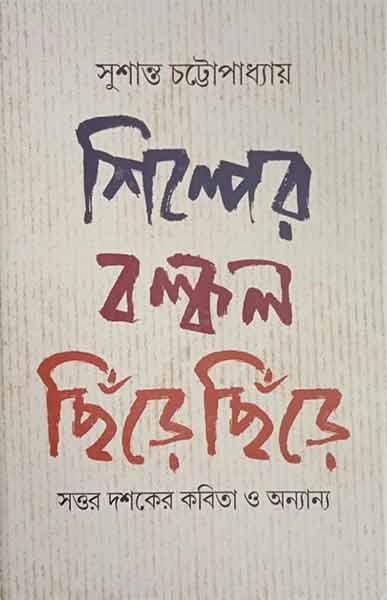 সুশান্ত চট্টোপাধ্যায়
শিল্পের
বল্কল
ছিঁড়ে ছিঁড়ে
সত্তর দশকের কবিতা ও অন্যান্য